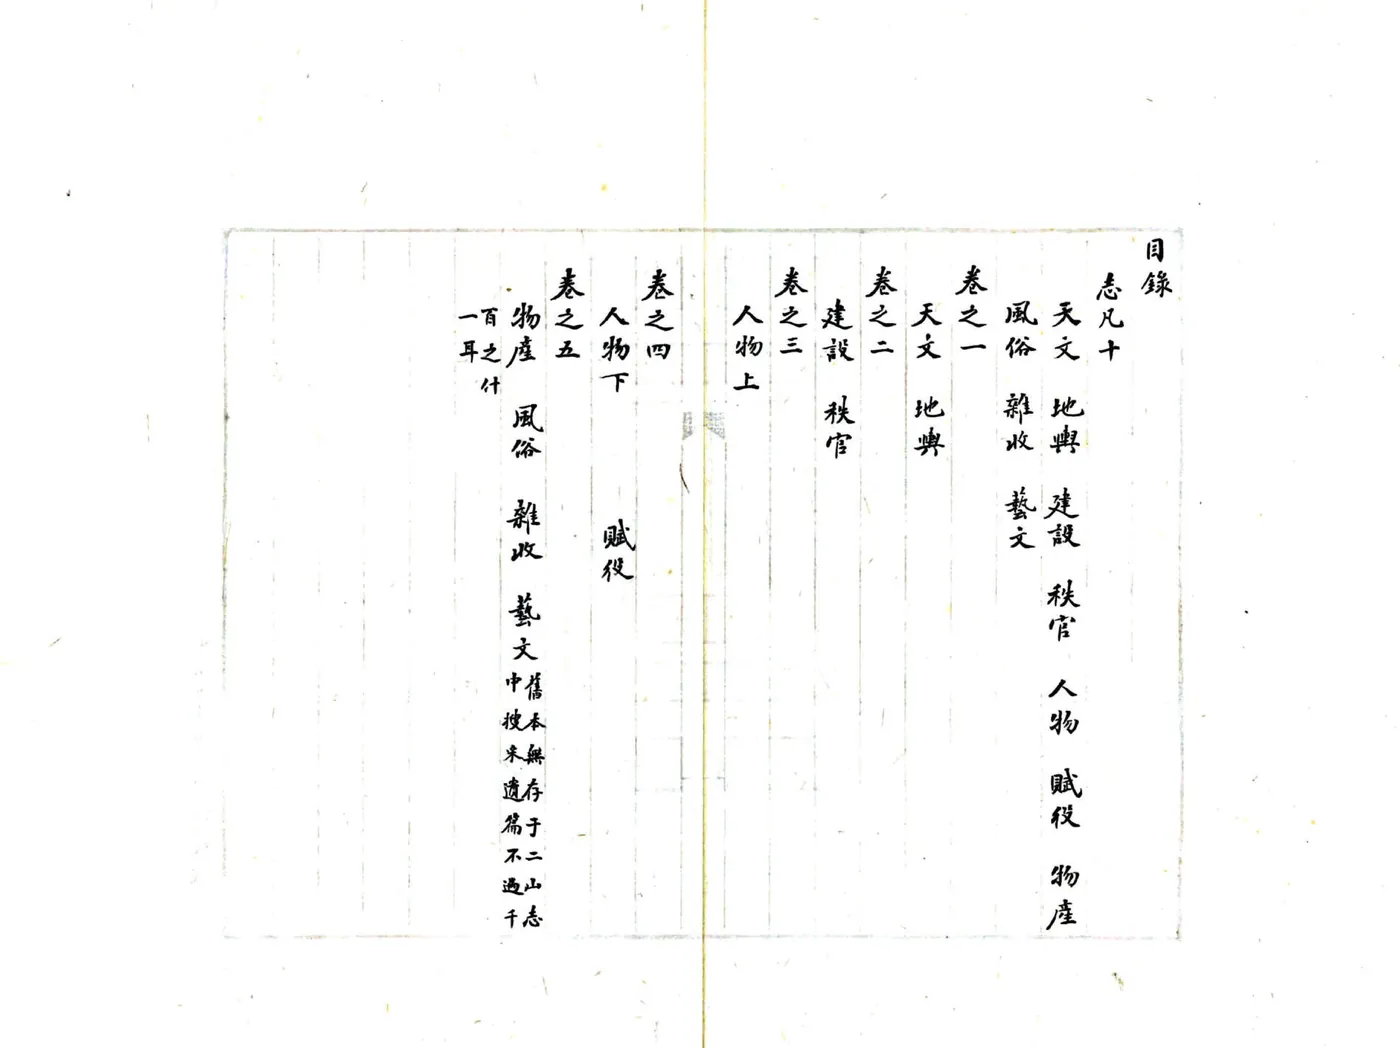 目錄
志凡十
天文　地輿　建設　秩官　人物　賦役　物產
風俗　雜收　藝文
卷之一
天文　地輿
卷之二
建設　秩官
卷之三
人物上
卷之四
人物下　賦役
卷之五
物產　風俗　雜收　藝文舊本無存于二山志
中搜采遺篇不過千
百之什
一耳